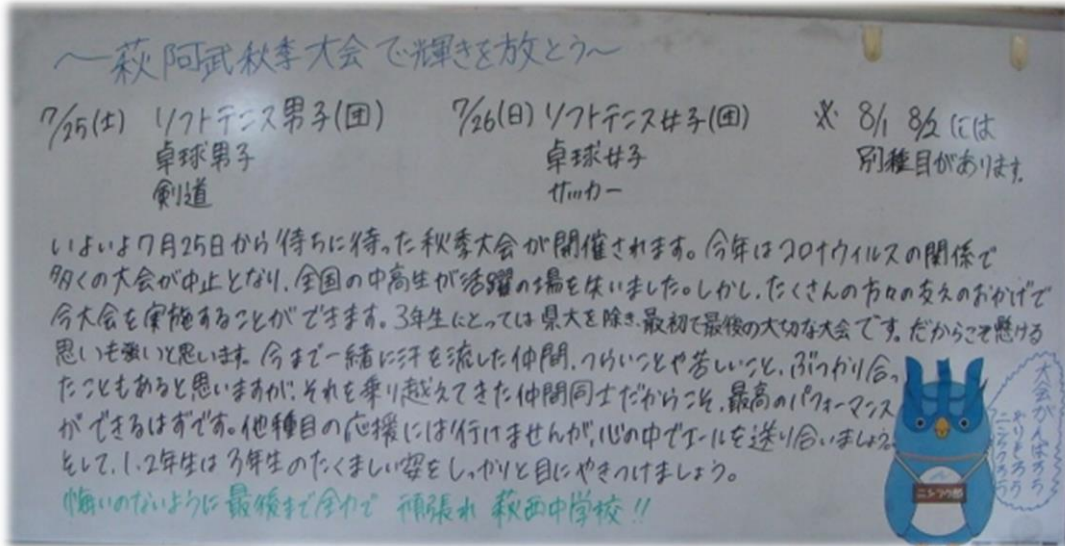 ～萩阿武秋季大会で輝きを放とう～
7/25(土) ソフトテニス男子(団) 7/26(日) ソフトテニス女子(団) ※ 8/1 8/2 には
卓球男子 卓球女子 別種目があります。
剣道 サッカー
いよいよ7月25日から待ちに待った秋季大会が開催されます。今年はコロナウィルスの関係で
多くの大会が中止となり、全国の中高生が活躍の場を失いました。しかし、たくさんの方々の支えのおかげで
今大会を実施することができます。3年生にとっては県大を除き、最初で最後の大切な大会です。だからこそ懸ける
思いも強いと思います。今まで一緒に汗を流した仲間、つらいことや苦しいこと、ぶつかり合っ
たこともあると思いますが、それを乗り越えてきた仲間同士だからこそ、最高のパフォーマンス
ができるはずです。他種目の応援には行けませんが、心の中でエールを送り合いましょう。
そして、1、2年生は3年生のたくましい姿をしっかりと目にやきつけましょう。
悔いのないように最後まで全力で 頑張れ 萩西中学校!!
大会がんばろう
ニシフク郎